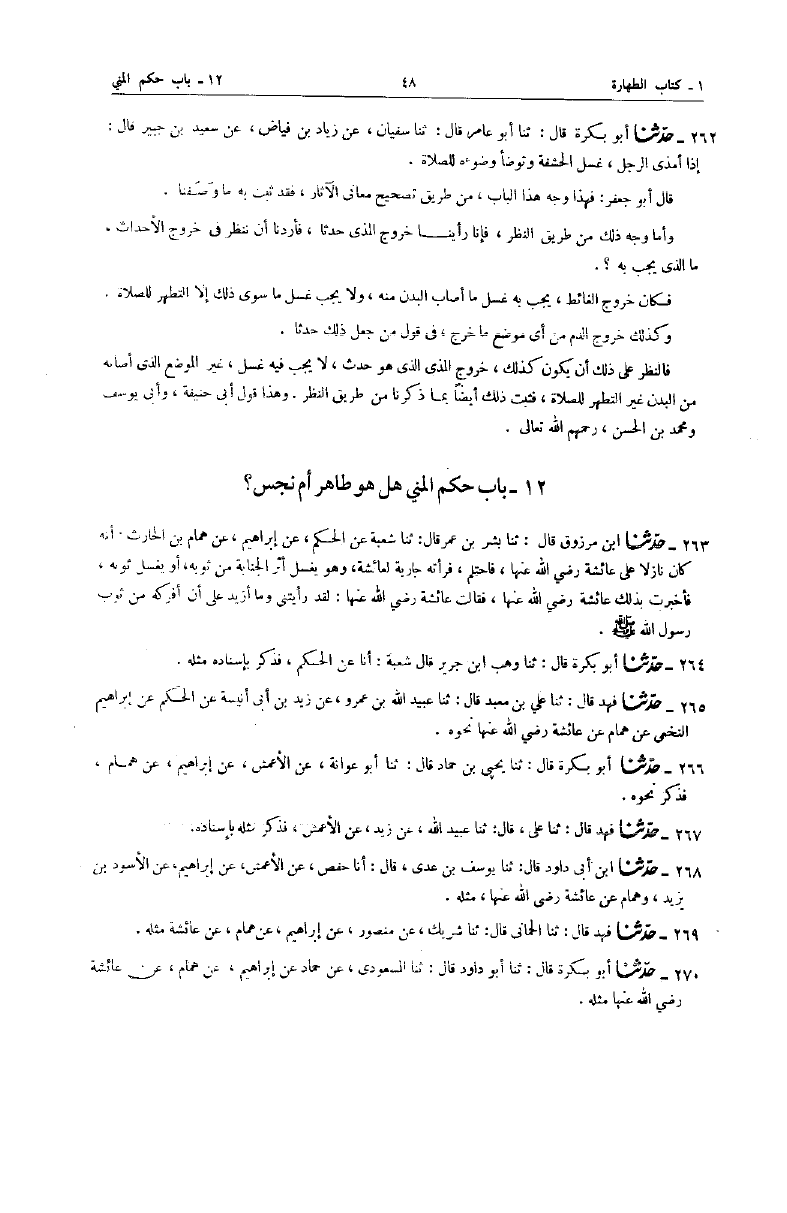 ١ ـ كتاب الطهارة ٤٨ ١٢ ـ باب حكم المني
٢٦٢ ـ حدّثنا أبو بكرة قال : ثنا أبو عامر قال : ثنا سفيان ، عن زياد بن فياض ، عن سعيد بن جبير قال :
إذا أمذى الرجل ، غسل الحشفة وتوضأ وضوءه للصلاة .
قال أبو جعفر : فهذا وجه هذا الباب ، من طريق تصحيح معانى الآثار ، فقد ثبت به ما وصفنا .
وأما وجه ذلك من طريق النظر ، فإنا رأينا خروج المذى حدثا ، فأردنا أن ننظر فى خروج الأحداث .
ما الذى يجب به ؟ .
فكان خروج الغائط ، يجب به غسل ما أصاب البدن منه ، ولا يجب غسل ما سوى ذلك إلا التطهر للصلاة .
وكذلك خروج الدم من أى موضع ما خرج ، فى قول من جعل ذلك حدثا .
فالنظر على ذلك أن يكون كذلك ، خروج المذى الذى هو حدث ، لا يجب فيه غسل ، غير الموضع الذى أصابه
من البدن غير التطهر للصلاة ، فثبت ذلك أيضاً بما ذكرنا من طريق النظر . وهذا قول أبى حنيفة ، وأبى يوسف
ومحمد بن الحسن ، رحمهم الله تعالى .
١٢ ـ باب حكم المني هل هو طاهر أم نجس؟
٢٦٣ ـ حدّثنا ابن مرزوق قال : ثنا بشر بن عمر قال : ثنا شعبة عن الحكم ، عن إبراهيم ، عن همام بن الحارث : أنه
كان نازلا على عائشة رضي الله عنها ، فاحتلم ، فرأته جارية لعائشة، وهو يغسل أثر الجنابة من ثوبه، أو يغسل ثوبه ،
فأخبرت بذلك عائشة رضي الله عنها ، فقالت عائشة رضي الله عنها : لقد رأيتنى وما أزيد على أن أفركه من ثوب
رسول الله ﷺ .
٢٦٤ ـ حدّثنا أبو بكرة قال : ثنا وهب ابن جرير قال شعبة : أنا عن الحكم ، فذكر بإسناده مثله .
٢٦٥ ـ حدّثنا فهد قال : ثنا علي بن معبد قال : ثنا عبيد الله بن عمرو ، عن زيد بن أبى أنيسة عن الحكم عن إبراهيم
النخعى عن همام عن عائشة رضي الله عنها نحوه .
٢٦٦ ـ حدّثنا أبو بكرة قال : ثنا يحيى بن حماد قال : ثنا أبو عوانة ، عن الأعمش ، عن إبراهيم ، عن همام ،
فذكر نحوه .
٢٦٧ ـ حدّثنا فهد قال : ثنا على ، قال: ثنا عبيد الله ، عن زيد ، عن الأعمش ، فذكر مثله بإسناده.
٢٦٨ ـ حدّثنا ابن أبى داود قال: ثنا يوسف بن عدى ، قال : أنا حفص ، عن الأعمش، عن إبراهيم، عن الأسود بن
يزيد ، وهمام عن عائشة رضي الله عنها ، مثله .
٢٦٩ ـ حدّثنا فهد قال : ثنا الحمانى قال: ثنا شريك، عن منصور ، عن إبراهيم ، عن همام ، عن عائشة مثله .
٢٧٠ ـ حدّثنا أبو بكرة قال : ثنا أبو داود قال : ثنا المسعودى ، عن حماد عن إبراهيم ، عن همام ، عن عائشة
رضي الله عنها مثله .